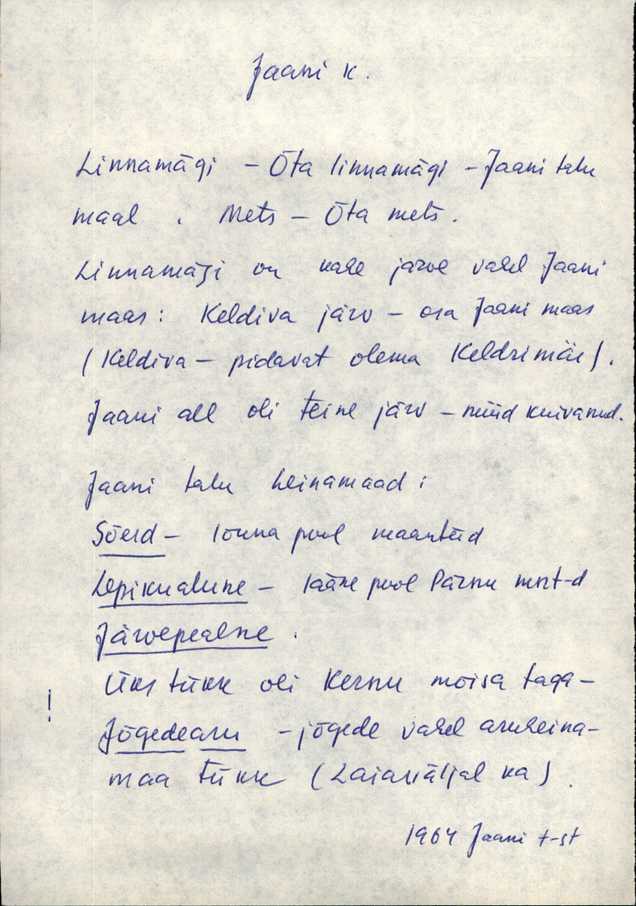 Jaani k.
Linnamägi - Õta linnamägi - Jaani talu
maal. Mets - Õta mets.
Linnamägi on kahe järve vahel Jaani
maas: Keldiva järv - osa Jaani maas
(Keldiva - pidavat olema Keldrimäe).
Jaani all oli teine järv - nüüd kuivanud.
Jaani talu heinamaad:
Sõerd - lõuna pool maanteed
Lepikualune - lääne pool Pärnu mnt-d
Järvepealne.
Üks tükk oli Kernu mõisa taga -
! Jõgedearu - jõgede vahel aruheina-
maa tükk (Laiaväljal ka).
1964 Jaani t-st